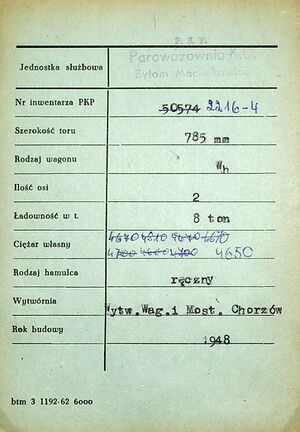 P. K. P.
Parowozownia K.D.
Bytom Maciejkowice
Jednostka służbowa
Nr inwentarza PKP 50574 2216-4
Szerokość toru 785 mm
Rodzaj wagonu Wh
Ilość osi 2
Ładowność w t. 8 ton
Ciężar własny 4670 4810 4670 4670
4700 4660 4700 4650
Rodzaj hamulca ręczny
Wytwórnia Wytw.Wag.i Most. Chorzów
Rok budowy 1948
btm 3 1192-62 6000